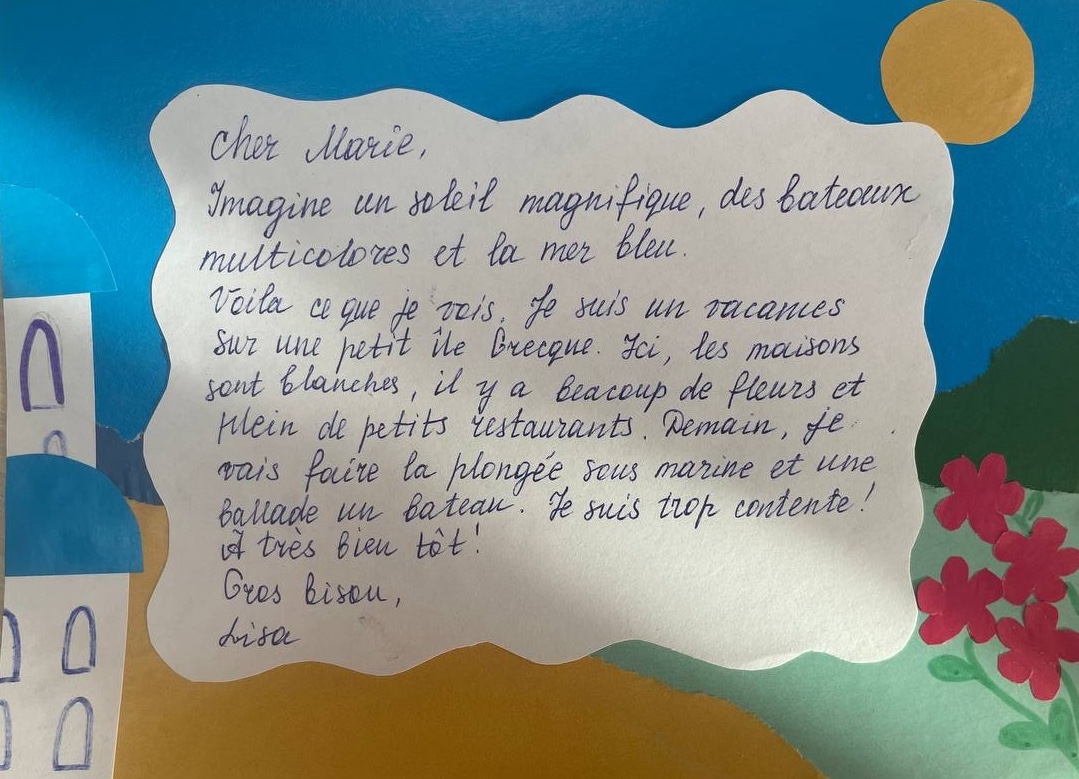 Cher Marie,
Imagine un soleil magnifique, des bateaux
multicolores et la mer bleu.
Voila ce que je vois. Je suis un vacances
sur une petit île Grecque. Ici, les maisons
sont blanches, il y a beacoup de fleurs et
plein de petits restaurants. Demain, je
vais faire la plongée sous marine et une
ballade un bateau. Je suis trop contente!
À très bien tôt!
Gros bisou,
Lisa